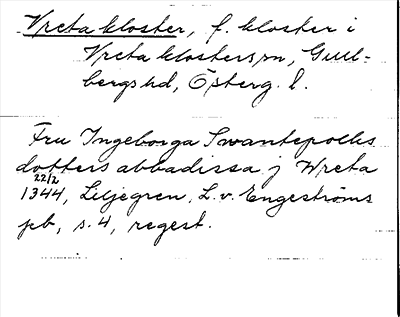 Vreta kloster, f. kloster i
Vreta klosters sn, Gull-
bergs hd, Österg. l.
Fru Ingeborga Swantepolks
dotters abbadissa j Wreta
22/2
1344, Liljegren, L. v. Engeströms
pb, s. 4, regest.